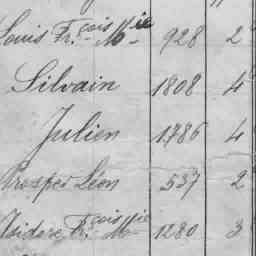 Louis Fr.çois M.ie 928 2
Silvain 1808 4
Julien 1786 4
Prosper Léon 537 2
Isidore Fr.çois M.ie 1280 3